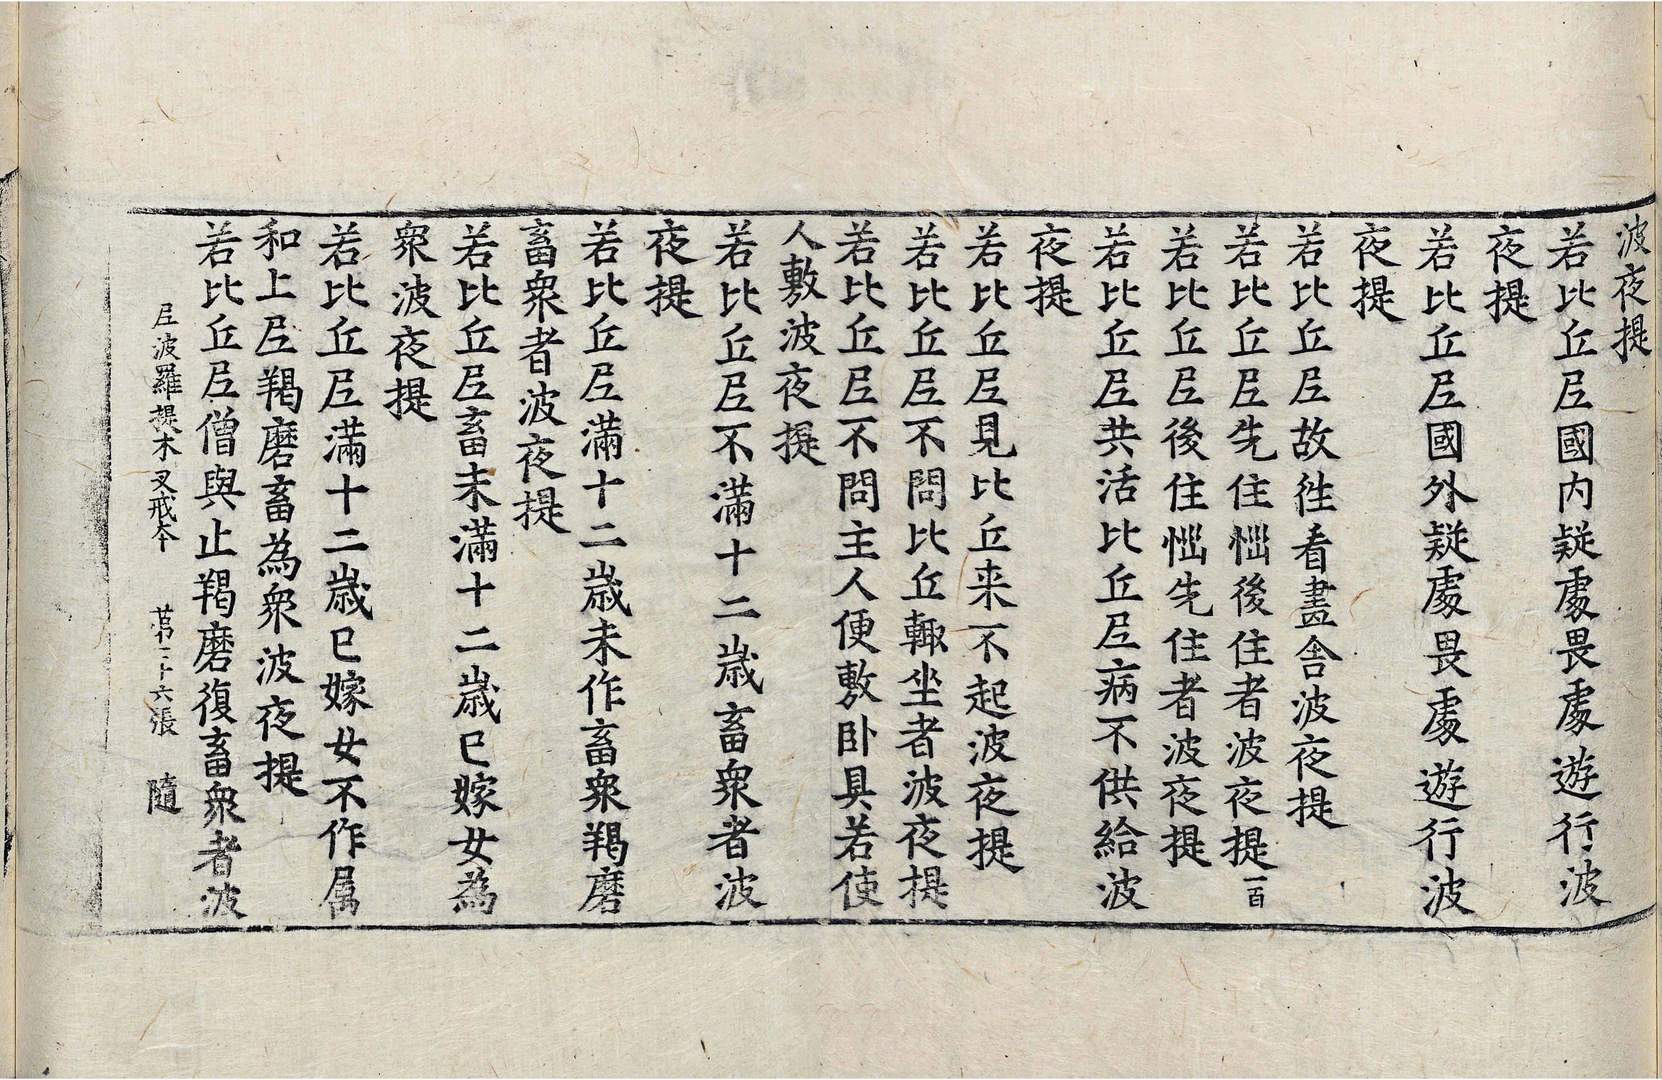 波夜提
若比丘尼國内疑處畏處遊行波
夜提
若比丘尼國外疑處畏處遊行波
夜提
若比丘尼故徃看畫舎波夜提
若比丘尼先住惱後住者波夜提一百
若比丘尼後住惱先住者波夜提
若比丘尼共活比丘尼病不供給波
夜提
若比丘尼見比丘来不起波夜提
若比丘尼不問比丘輙坐者波夜提
若比丘尼不問主人便敷卧具若使
人敷波夜提
若比丘尼不滿十二歳畜衆者波
夜提
若比丘尼滿十二歳未作畜衆羯磨
畜衆者波夜提
若比丘尼畜未滿十二歳已嫁女為
衆波夜提
若比丘尼滿十二歳已嫁女不作属
和上尼羯磨畜為衆波夜提
若比丘尼僧與止羯磨復畜衆者波
尼波羅提木叉戒本 苐二十六張 隨